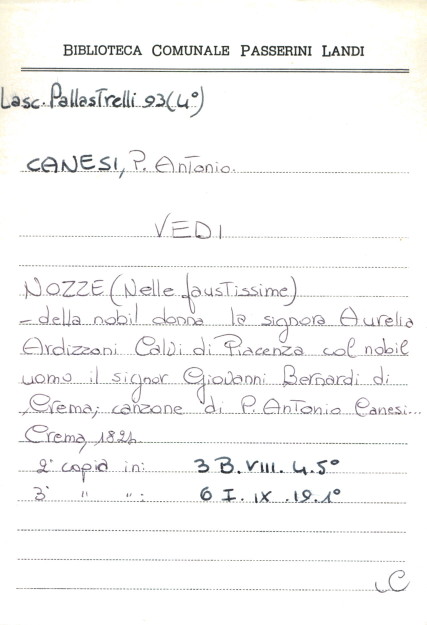 BIBLIOTECA COMUNALE PASSERINI LANDI
Lasc. Pallastrelli 93(4°)
CANESI, P. Antonio.
VEDI
NOZZE (Nelle faustissime)
- della nobil donna la signora Aurelia
Ardizzoni Calvi di Piacenza col nobil
uomo il signor Giovanni Bernardi di
Crema; canzone di P. Antonio Canesi...
Crema, 1824.
2ª copia in: 3 B.VIII.4.5°
3ª " ": 6 I.IX.19.1°
C